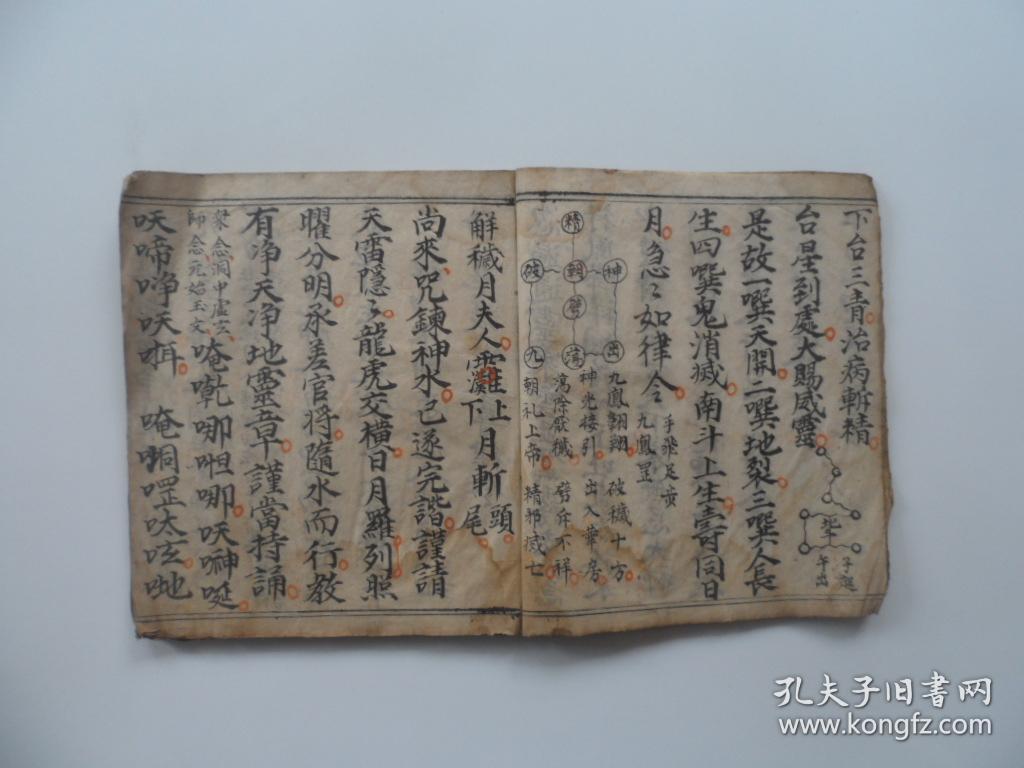 下台三青治病斬精
台星到處大賜威靈
子起
午出
是故一噀天開二噀地裂三噀人長
生四噀鬼消滅南斗上生壽同日
月急〻如律令
手飛足步
九鳳罡
神
出
精
朝
劈
蕩
破
九
九鳳翱翔 破穢十方
神光接引 出入華房
蕩除厭穢 劈斥不祥
朝礼上帝 精邪滅亡
解穢月夫人
上月斬頭
下尾
尚來咒鍊神水已遂完諧謹請
天雷隱〻龍虎交橫日月羅列照
曜分明承差官将隨水而行教
有净天净地靈章謹當持誦
衆念洞中虛玄
師念元始玉文
唵𠹌哪呾哪㕭𠱓𠳃
㕭啼净㕭啊 唵
孔夫子旧书网
www.kongfz.com